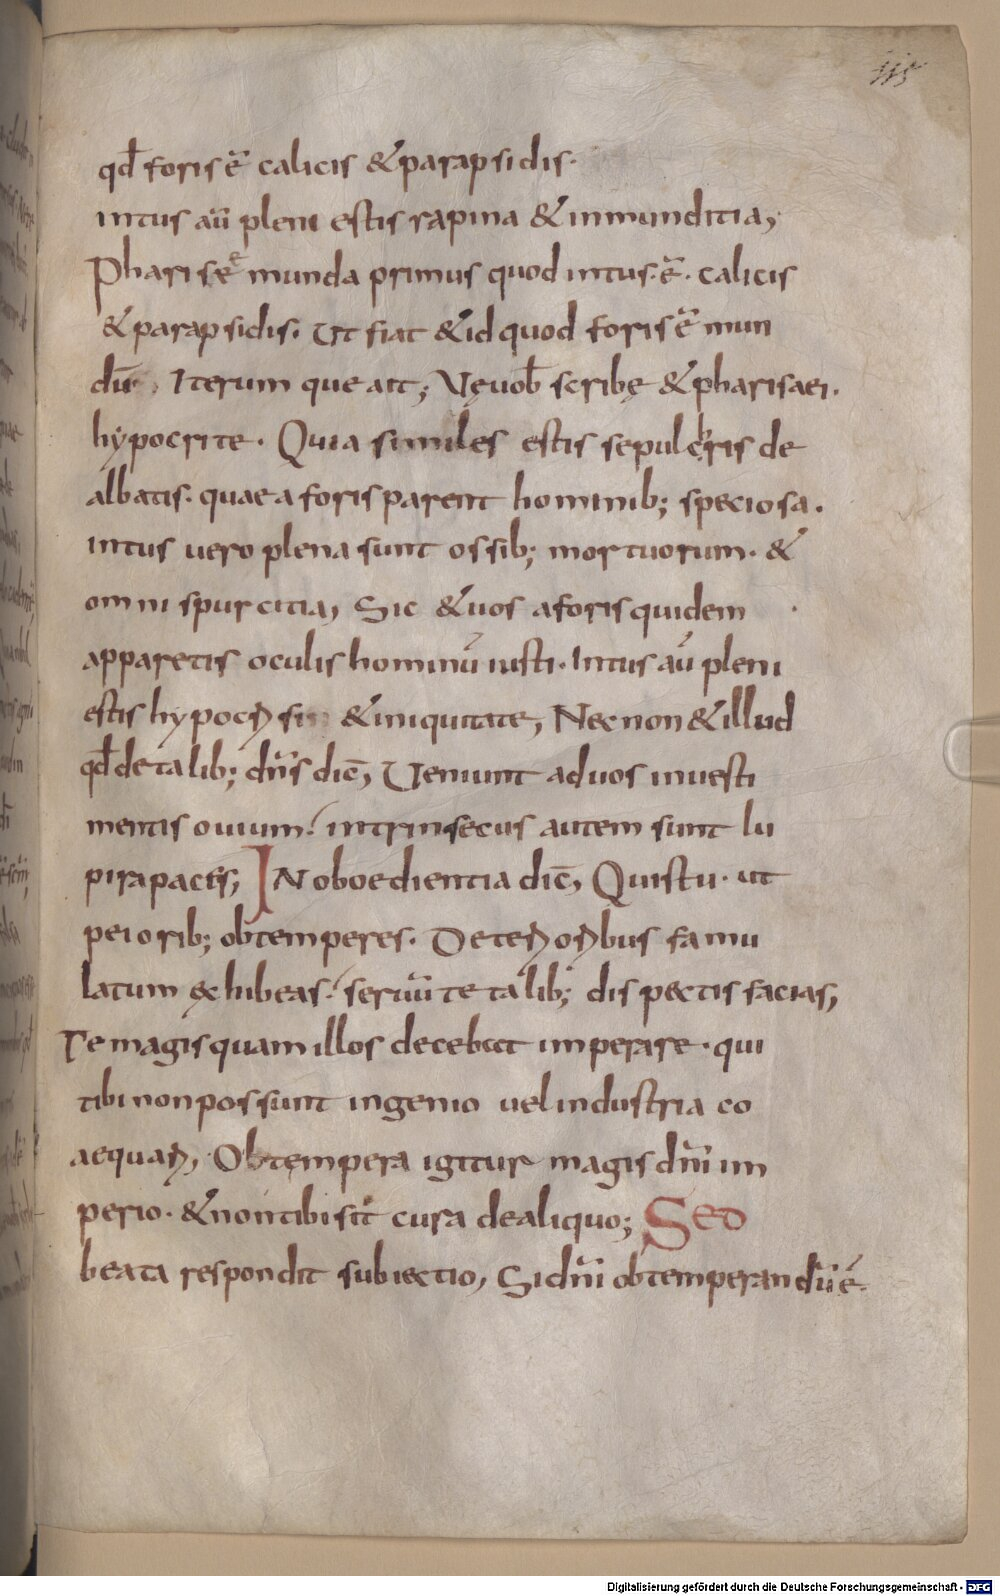 115
qd̄ foris ē calicis & parapsidis·
intus aū pleni estis rapina & inmunditia;
Pharisęe munda primus quod intus· ē· calicis
& parapsidis. Ut fiat & id quod foris ē mun
dū. Iterum que ait; Vę uob̄ scribę & pharisaei.
hypocrite. Quia similes estis sepulcris de
albatis. quae a foris parent hominib; speciosa.
intus uero plena sunt ossib; mortuorum. &
omni spurcitia, Sic & uos a foris quidem
apparetis oculis hominū iusti. Intus aū pleni
estis hypocꝝ & iniquitate, Necnon & illud
qd̄ de talib; dn̄s dic̄, Ueniunt ad uos in uesti
mentis ouium. intrinsecus autem sunt lu
pi rapaces; IN oboedientia dic̄, Quis tu· ut
peiorib; obtemperes. Deteꝝoꝝbus famu
latum exhibeas. seruū te talib; dispectis facias,
Te magis quam illos decebat imperare. qui
tibi non possunt ingenio uel industria co
aequaꝝ, Obtempera igitur magis dn̄i im
perio. & non tibi sit cura de aliquo; Sed
beata respondit subiectio, Si dn̄i obtemperandū ē.
Digitalisierung gefördert durch die Deutsche Forschungsgemeinschaft - DFG